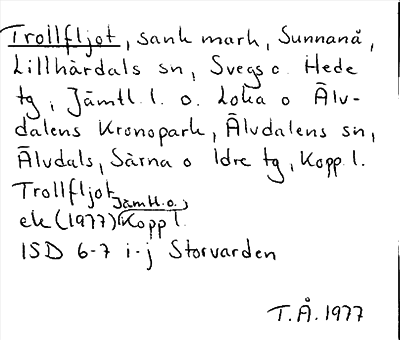 Trollfljot, sank mark, Sunnanå,
Lillhärdals sn, Svegs o. Hede
tg, Jämtl. l. o. Loka o Älv-
dalens Kronopark, Älvdalens sn,
Älvdals, Särna o Idre tg, Kopp. l.
Trollfljot
Jämtl. o.,
ek (1977) Kopp l.
ISD 6-7 i-j Storvarden
T.Å. 1977